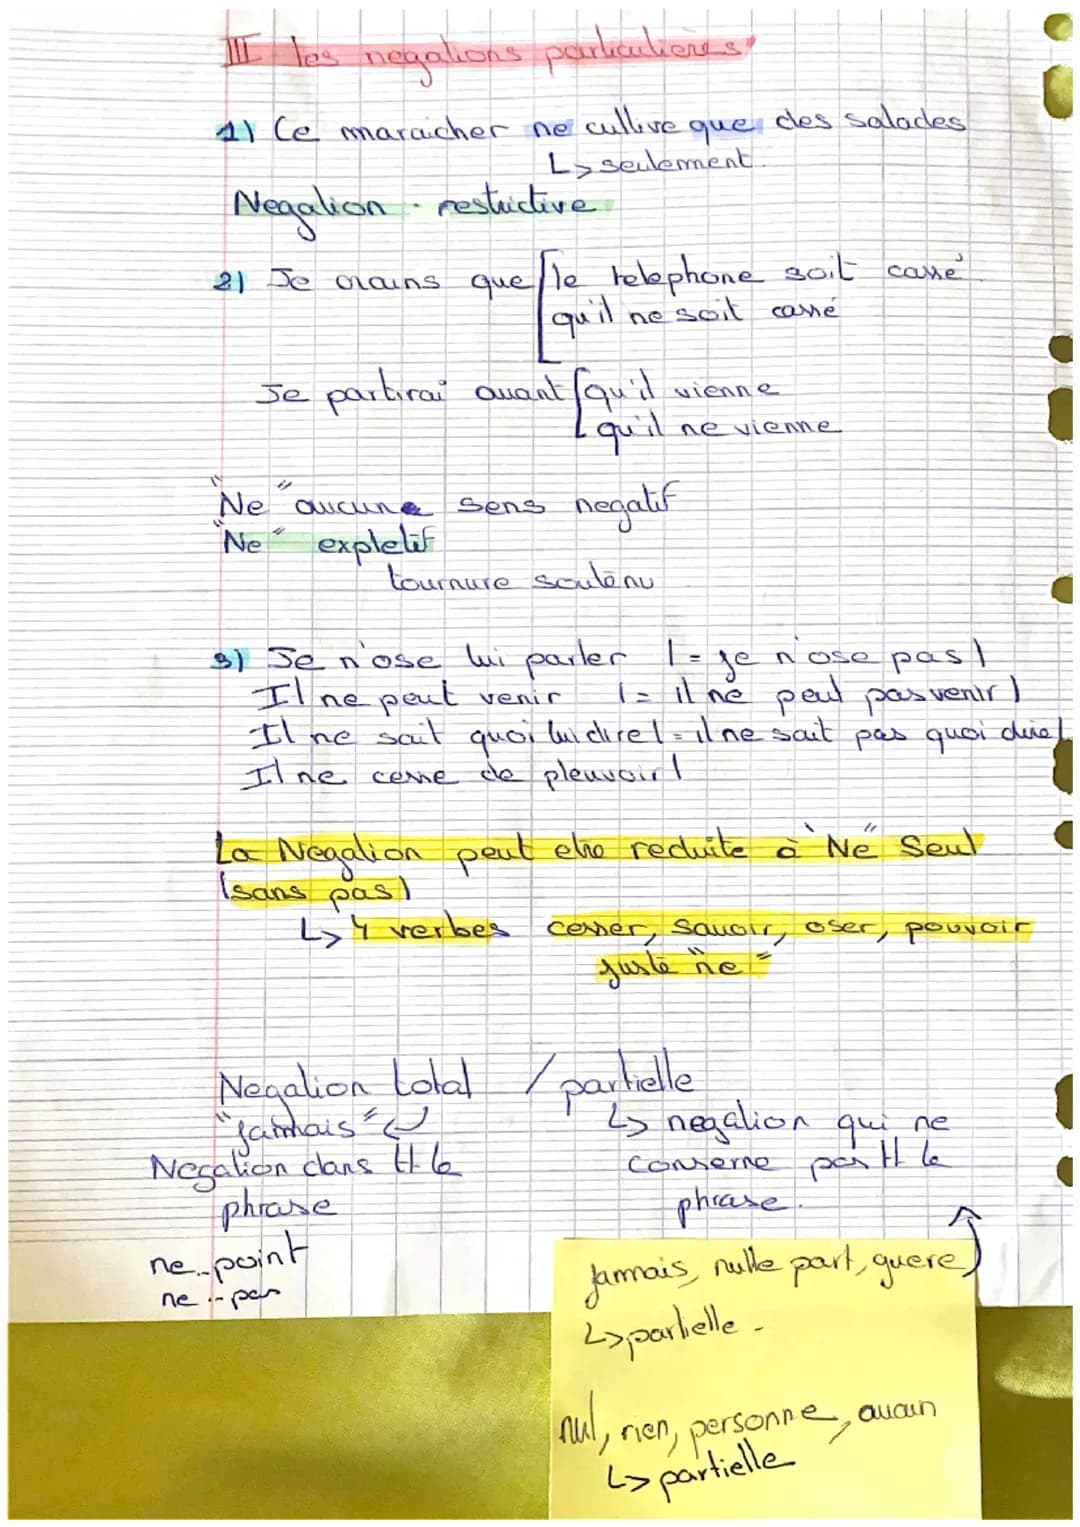 III les negations particulieres
1) Ce maraicher ne cultive que des salades
↳ seulement.
Negation restrictive
2) Je crains que [le telephone soit cassé
[qu'il ne soit cassé
Je partirai avant [qu'il vienne
[qu'il ne vienne
"Ne" aucune sens negatif
"Ne" expletif
tournure soutenu
3) Je n'ose lui parler (= je n'ose pas)
Il ne peut venir (= il ne peut pas venir)
Il ne sait quoi lui dire (= il ne sait pas quoi dire)
Il ne cesse de pleuvoir!
La Negation peut etre reduite à "Ne" Seul
(sans pas)
↳ 4 verbes cesser, savoir, oser, pouvoir
juste "ne"
Negation total / partielle
"jamais" ↳ negation qui ne
Negation dans tt la conserne pas tt la
phrase phrase.
ne..point
ne..pas
jamais, nulle part, guere
↳ partielle.
nul, rien, personne, aucun
↳ partielle